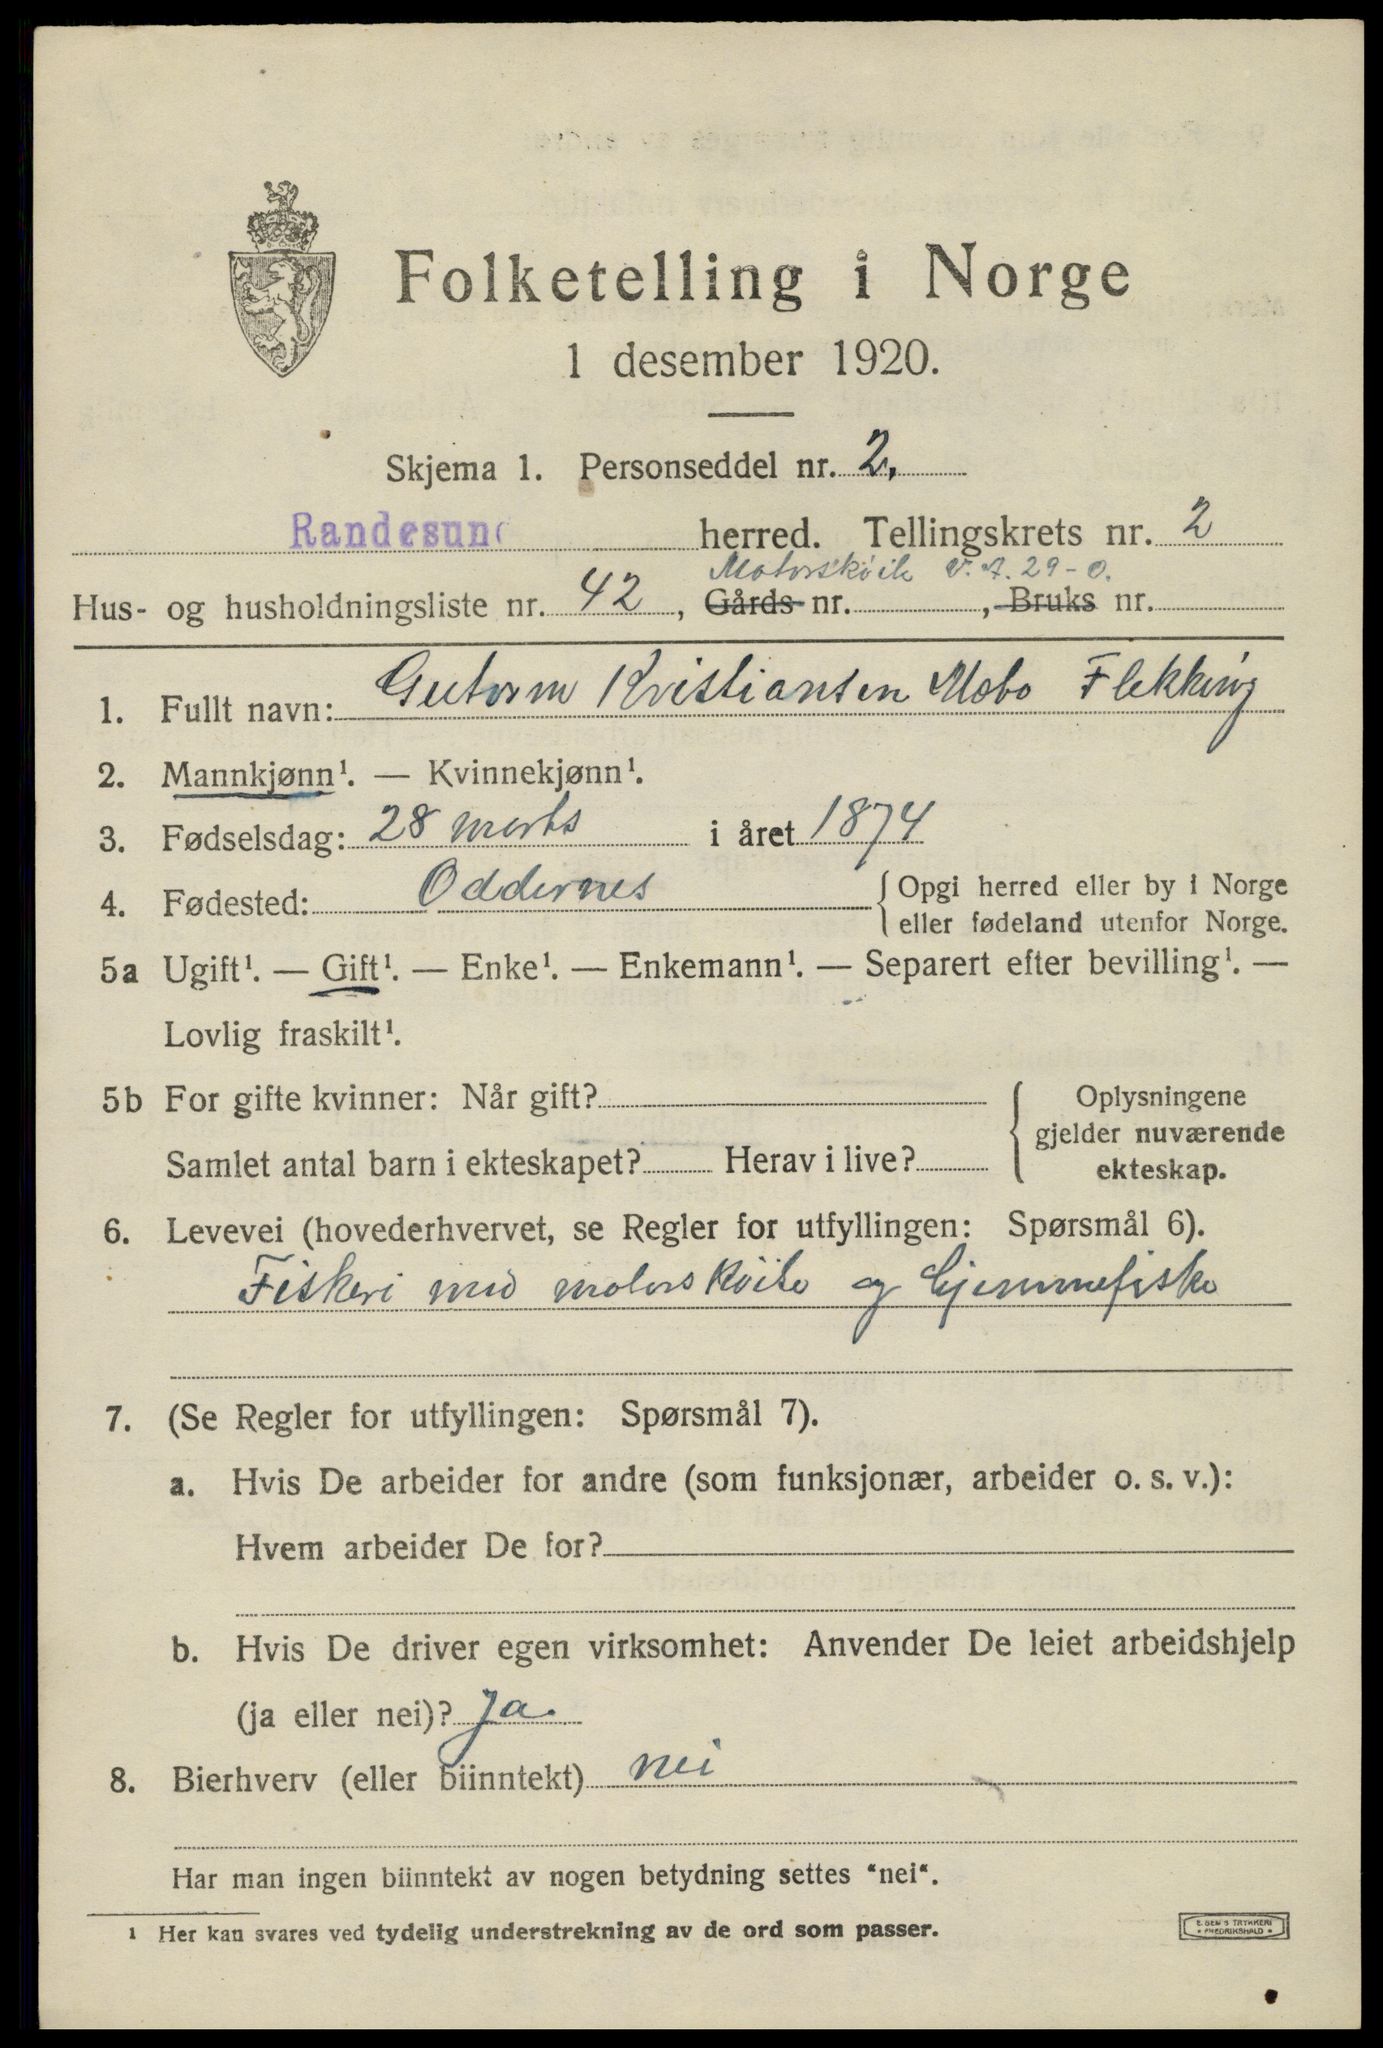 Folketelling i Norge
1 desember 1920.
Skjema 1. Personseddel nr. 2.
Randesund herred. Tellingskrets nr. 2
Motorskøite V. A. 29-O.
Hus- og husholdningsliste nr. 42, Gårds nr. , Bruks nr.
1. Fullt navn: Gutorm Kristiansen Mæbø Flekkerøy
2. Mannkjønn¹. — Kvinnekjønn¹.
3. Fødselsdag: 28 marts i året 1874
4. Fødested: Oddernes { Opgi herred eller by i Norge
eller fødeland utenfor Norge.
5a Ugift¹. — Gift¹. — Enke¹. — Enkemann¹. — Separert efter bevilling¹. —
Lovlig fraskilt¹.
5b For gifte kvinner: Når gift? { Oplysningene
gjelder nuværende
Samlet antal barn i ekteskapet? Herav i live? ekteskap.
6. Levevei (hovederhvervet, se Regler for utfyllingen: Spørsmål 6).
Fiskeri med motorskøite og hjemmefiske
7. (Se Regler for utfyllingen: Spørsmål 7).
a. Hvis De arbeider for andre (som funksjonær, arbeider o. s. v.):
Hvem arbeider De for?
b. Hvis De driver egen virksomhet: Anvender De leiet arbeidshjelp
(ja eller nei)? Ja.
8. Bierhverv (eller biinntekt) nei
Har man ingen biinntekt av nogen betydning settes "nei".
¹ Her kan svares ved tydelig understrekning av de ord som passer.
E. SEM'S TRYKKERI
FREDRIKSHALD